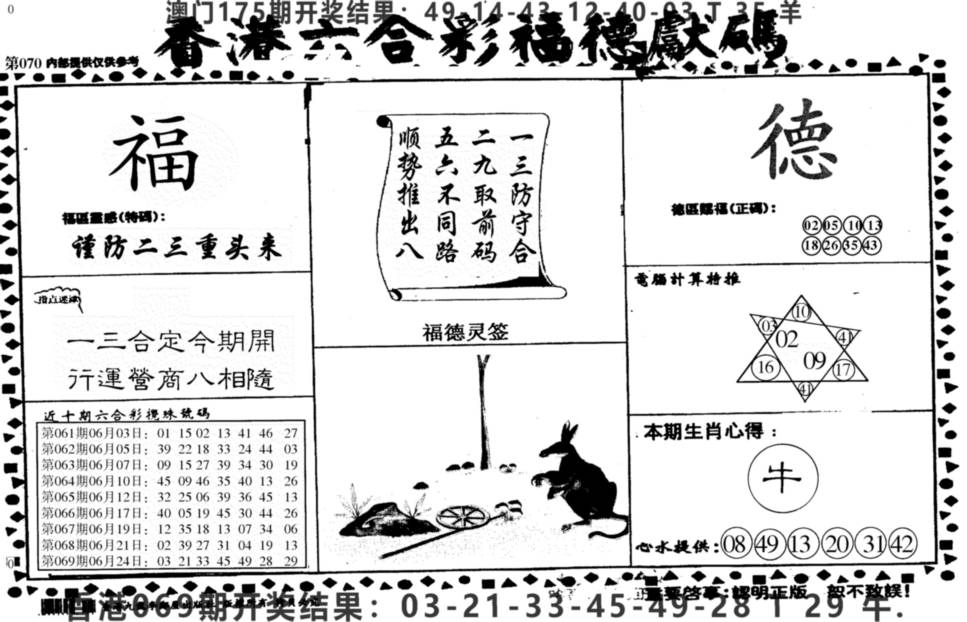 澳门175期开奖结果：49-14-43-12-40-03 T 35 羊
香港六合彩福德獻碼
第070 内部提供仅供参考
福
福區靈感(特碼)：
谨防二三重头来
指点迷津
一三合定今期開
行運營商八相隨
近十期六合彩攪珠號碼
第061期06月03日：01 15 02 13 41 46 27
第062期06月05日：39 22 18 33 24 44 03
第063期06月07日：09 15 27 39 34 30 19
第064期06月10日：45 09 46 35 40 13 26
第065期06月12日：32 25 06 39 36 45 13
第066期06月17日：40 05 19 45 30 44 26
第067期06月19日：12 35 18 13 07 34 06
第068期06月21日：02 39 27 31 04 19 13
第069期06月24日：03 21 33 45 49 28 29
一三防守合
二九取前码
五六不同路
顺势推出八
福德灵签
德
德區賜福(正碼)：
02 05 10 13
18 26 35 43
電腦計算特推
10
03 02 41
16 09 17
41
本期生肖心得：
牛
心水提供：08 49 13 20 31 42
重要啓事：認明正版 恕不致誤！
香港069期开奖结果：03-21-33-45-49-28 T 29 牛.